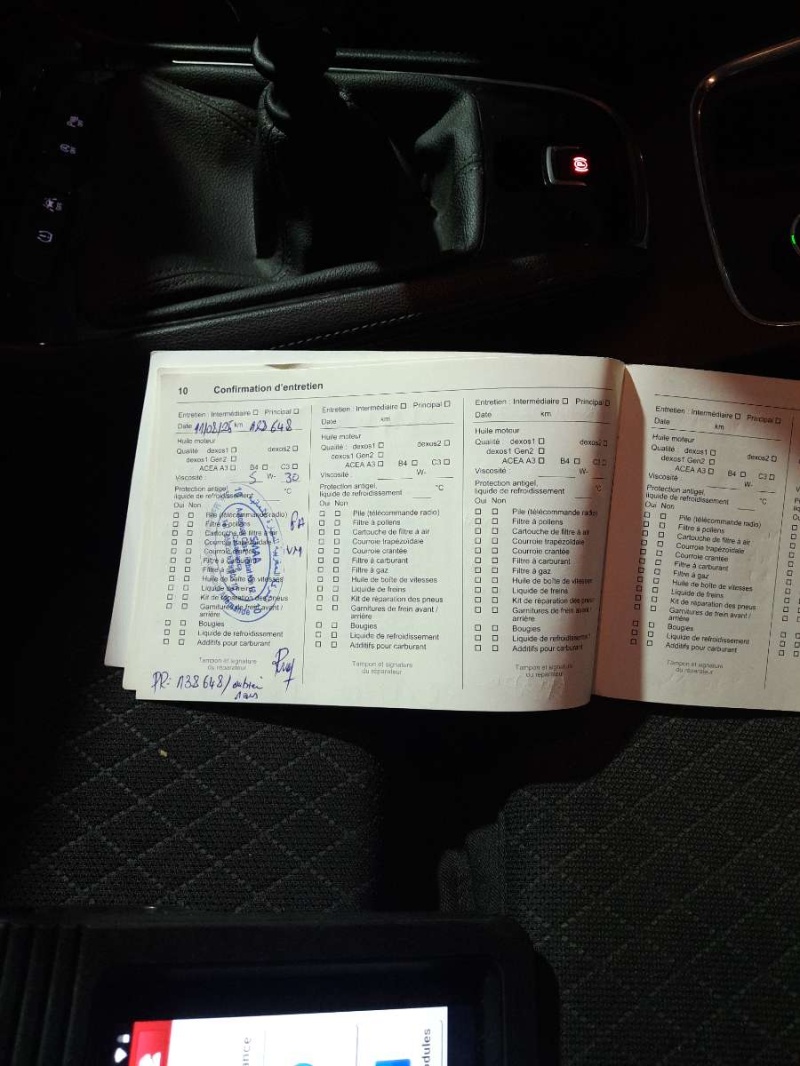 10 Confirmation d'entretien
Entretien : Intermédiaire ☐ Principal ☐
Date 11/08/25 km 128 648
Huile moteur
Qualité : dexos1 ☐ dexos2 ☐
dexos1 Gen2 ☐
ACEA A3 ☐ B4 ☐ C3 ☐
Viscosité : 5 W- 30
Protection antigel,
liquide de refroidissement °C
Oui Non
☐ ☐ Pile (télécommande radio)
☐ ☐ Filtre à pollens PA
☐ ☐ Cartouche de filtre à air
☐ ☐ Courroie trapézoïdale
☐ ☐ Courroie VM
☐ ☐ Filtre à
☐ ☐ Filtre à
☐ ☐ Huile de boîte de vitesses
☐ ☐ Liquide de freins
☐ ☐ Kit de réparation des pneus
☐ ☐ Garnitures de frein avant /
arrière
☐ ☐ Bougies
☐ ☐ Liquide de refroidissement
☐ ☐ Additifs pour carburant
Tampon et signature
du réparateur
SMA
PR: 138648/entretien
1 ans
Entretien : Intermédiaire ☐ Principal ☐
Date km
Huile moteur
Qualité : dexos1 ☐ dexos2 ☐
dexos1 Gen2 ☐
ACEA A3 ☐ B4 ☐ C3 ☐
Viscosité : W-
Protection antigel,
liquide de refroidissement °C
Oui Non
☐ ☐ Pile (télécommande radio)
☐ ☐ Filtre à pollens
☐ ☐ Cartouche de filtre à air
☐ ☐ Courroie trapézoïdale
☐ ☐ Courroie crantée
☐ ☐ Filtre à carburant
☐ ☐ Filtre à gaz
☐ ☐ Huile de boîte de vitesses
☐ ☐ Liquide de freins
☐ ☐ Kit de réparation des pneus
☐ ☐ Garnitures de frein avant /
arrière
☐ ☐ Bougies
☐ ☐ Liquide de refroidissement
☐ ☐ Additifs pour carburant
Tampon et signature
du réparateur
Entretien : Intermédiaire ☐ Principal ☐
Date km
Huile moteur
Qualité : dexos1 ☐ dexos2 ☐
dexos1 Gen2 ☐
ACEA A3 ☐ B4 ☐ C3 ☐
Viscosité : W-
Protection antigel,
liquide de refroidissement °C
Oui Non
☐ ☐ Pile (télécommande radio)
☐ ☐ Filtre à pollens
☐ ☐ Cartouche de filtre à air
☐ ☐ Courroie trapézoïdale
☐ ☐ Courroie crantée
☐ ☐ Filtre à carburant
☐ ☐ Filtre à gaz
☐ ☐ Huile de boîte de vitesses
☐ ☐ Liquide de freins
☐ ☐ Kit de réparation des pneus
☐ ☐ Garnitures de frein avant /
arrière
☐ ☐ Bougies
☐ ☐ Liquide de refroidissement
☐ ☐ Additifs pour carburant
Tampon et signature
du réparateur
Entretien : Intermédiaire ☐ Principal ☐
Date km
Huile moteur
Qualité : dexos1 ☐ dexos2 ☐
dexos1 Gen2 ☐
ACEA A3 ☐ B4 ☐ C3 ☐
Viscosité : W-
Protection antigel,
liquide de refroidissement °C
Oui Non
☐ ☐ Pile (télécommande radio)
☐ ☐ Filtre à pollens
☐ ☐ Cartouche de filtre à air
☐ ☐ Courroie trapézoïdale
☐ ☐ Courroie crantée
☐ ☐ Filtre à carburant
☐ ☐ Filtre à gaz
☐ ☐ Huile de boîte de vitesses
☐ ☐ Liquide de freins
☐ ☐ Kit de réparation des pneus
☐ ☐ Garnitures de frein avant /
arrière
☐ ☐ Bougies
☐ ☐ Liquide de refroidissement
☐ ☐ Additifs pour carburant
Tampon et signature
du réparateur